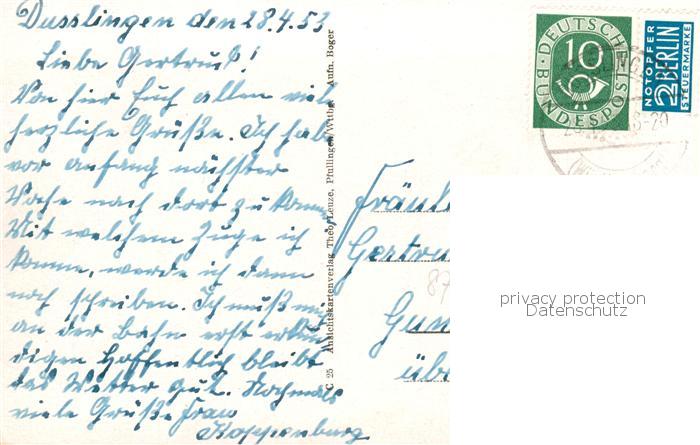 Dusslingen den 28.4.53
Liebe Gertrud!
Von hier Euch allen viel
herzliche Grüße. Ich habe
vor anfang nächster
Woche nach dort zu komme
Mit welchem Zuge ich
komme, werde ich dann
noch schreiben. Ich muß mich
an der Bahn erst erkun
digen Hoffentlich bleibt
das Wetter gut. Nochmals
viele Grüße Frau
Koppenburg
C 25 Ansichtskartenverlag Theo Leuze, Pfullingen/Wttbg. Aufn. Boger
DEUTSCHE
BUNDESPOST
10
NOTOPFER
2 BERLIN
STEUERMARKE
Fräule
Gertru
87
Gun
üb
privacy protection
Datenschutz